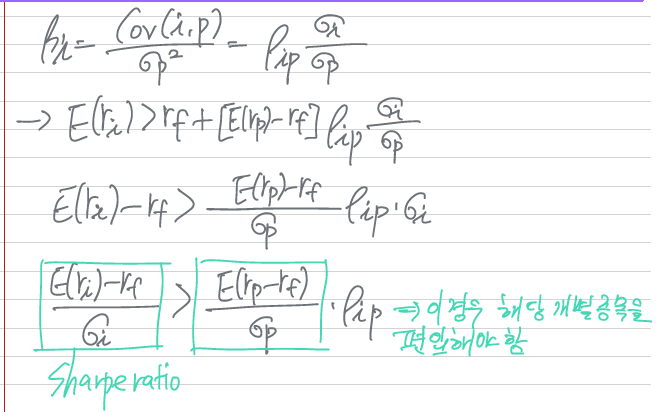 βi = Cov(i,p) / σp² = ρip σi / σp
→ E(ri) > rf + [E(rp)-rf] ρip · σi / σp
E(ri)-rf > E(rp)-rf / σp ρip · σi
E(ri)-rf / σi > E(rp-rf) / σp · ρip ⇒ 이 경우 해당 개별종목을
편입해야 함
Sharpe ratio